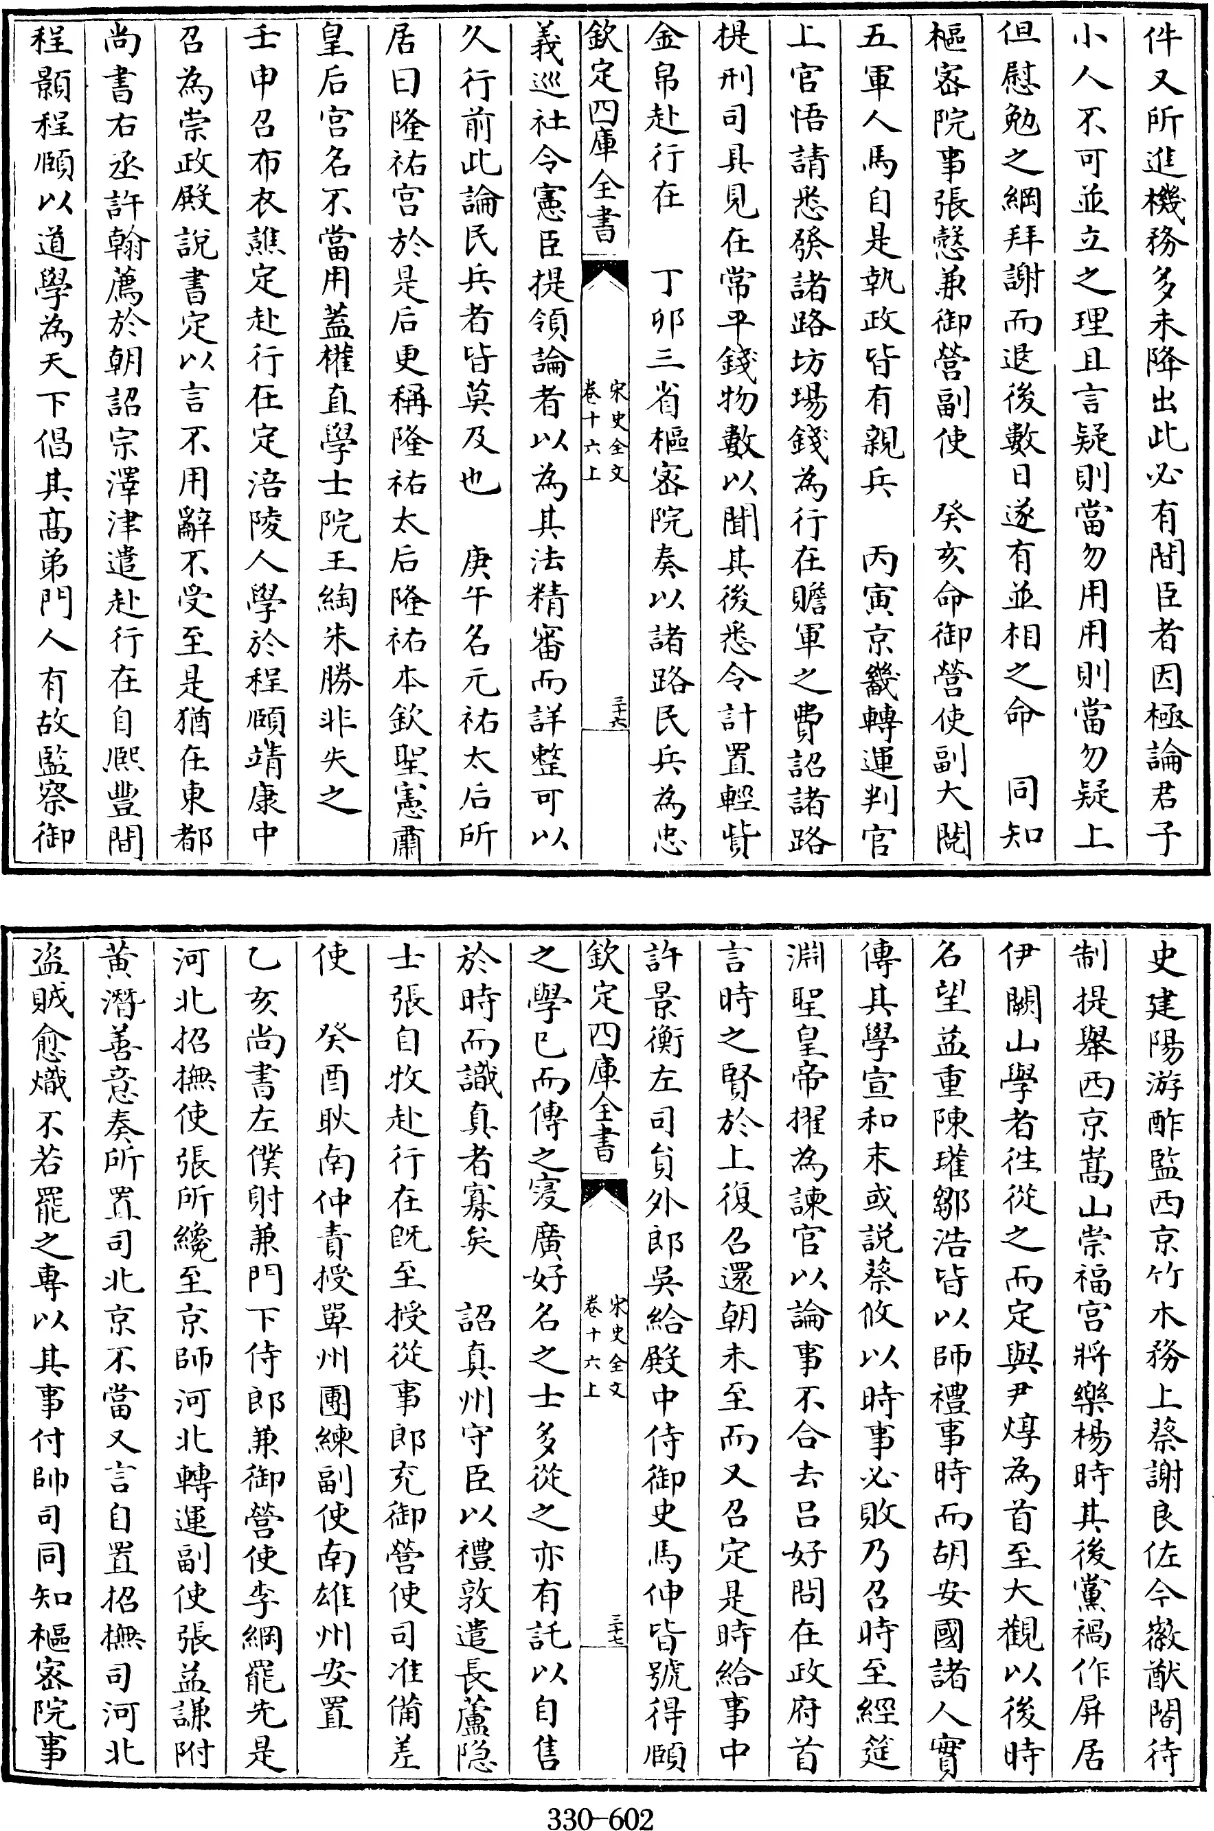 件又所進機務多未降出此必有間臣者因極論君子
小人不可並立之理且言疑則當勿用用則當勿疑上
但慰勉之綱拜謝而退後數日遂有並相之命　同知
樞密院事張慤兼御營副使　癸亥命御營使副大閱
五軍人馬自是執政皆有親兵　丙寅京畿轉運判官
上官悟請悉發諸路坊場錢為行在贍軍之費詔諸路
提刑司具見在常平錢物數以聞其後悉令計置輕貲
金帛赴行在　丁卯三省樞密院奏以諸路民兵為忠
欽定四庫全書
宋史全文
卷十六上
三十六
義巡社令憲臣提領論者以為其法精審而詳整可以
久行前此論民兵者皆莫及也　庚午名元祐太后所
居曰隆祐宫於是后更稱隆祐太后隆祐本欽聖憲肅
皇后宮名不當用蓋權直學士院王綯朱勝非失之
壬申召布衣譙定赴行在定涪陵人學於程頤靖康中
召為崇政殿說書定以言不用辭不受至是猶在東都
尚書右丞許翰薦於朝詔宗澤津遣赴行在自熙豐間
程顥程頤以道學為天下倡其髙弟門人有故監察御
史建陽游酢監西京竹木務上蔡謝良佐今徽猷閣待
制提舉西京嵩山崇福宫將樂楊時其後黨禍作屏居
伊闕山學者往從之而定與尹焞為首至大觀以後時
名望益重陳瓘鄒浩皆以師禮事時而胡安國諸人實
傳其學宣和末或説蔡攸以時事必敗乃召時至經筵
淵聖皇帝擢為諫官以論事不合去吕好問在政府首
言時之賢於上復召還朝未至而又召定是時給事中
許景衡左司員外郎吳給殿中侍御史馬伸皆號得頤
欽定四庫全書
宋史全文
卷十六上
三十七
之學已而傳之寖廣好名之士多從之亦有託以自售
於時而識真者寡矣　詔真州守臣以禮敦遣長蘆隐
士張自牧赴行在既至授從事郎充御營使司准備差
使　癸酉耿南仲責授單州團練副使南雄州安置
乙亥尚書左僕射兼門下侍郎兼御營使李綱罷先是
河北招撫使張所纔至京師河北轉運副使張益謙附
黄潛善意奏所置司北京不當又言自置招撫司河北
盗賊愈熾不若罷之專以其事付帥司同知樞密院事
330-602